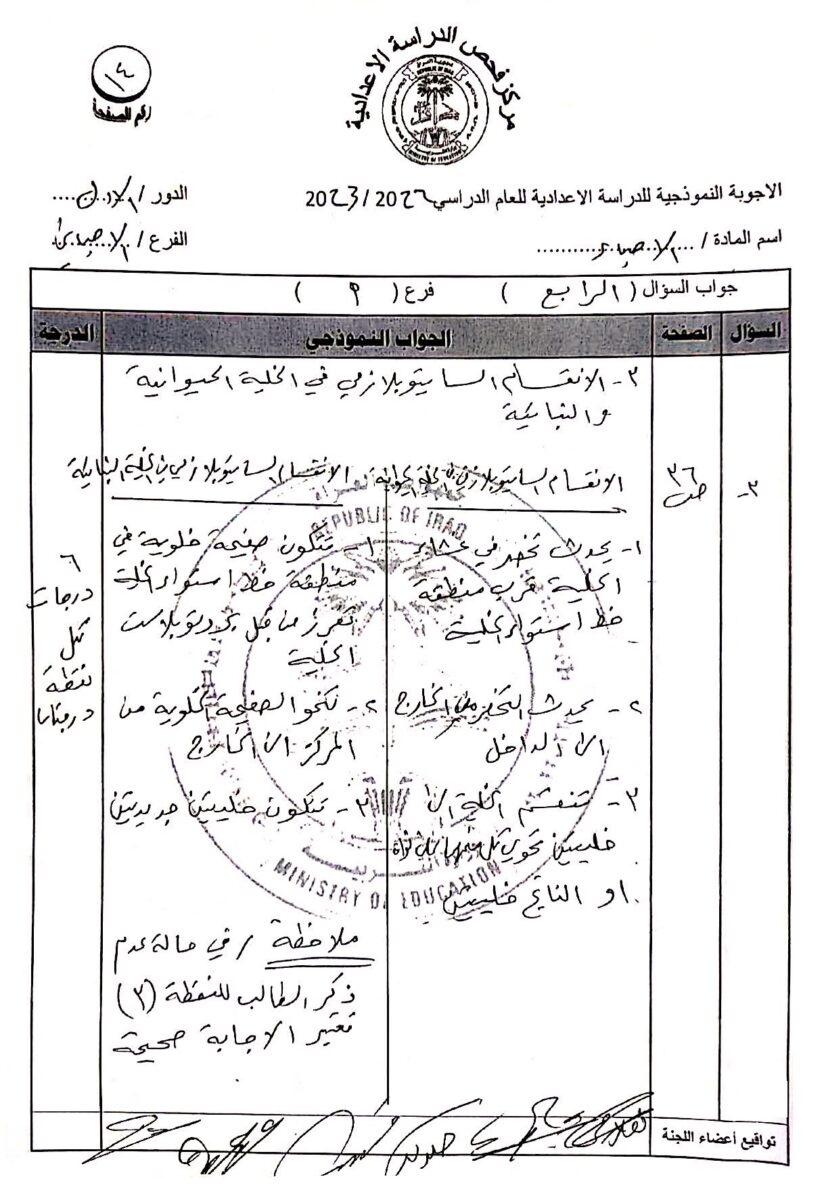 مركز فحص الدراسة الاعدادية
REPUBLIC OF IRAQ
MINISTRY OF EDUCATION
١٤
رقم الصفحة
الاجوبة النموذجية للدراسة الاعدادية للعام الدراسي 2022 / 2023
الدور / الاول
اسم المادة / الاحياء
الفرع / الاحيائي
جواب السؤال ( الرابع ) فرع ( )
السؤال الصفحة الجواب النموذجي الدرجة
٣- الانقسام السايتوبلازمي في الخلية الحيوانية
والنباتية
٣-
ص ٣٦
الانقسام السايتوبلازمي في الخلية الحيوانية
١- يحدث تخصر في غشاء
الخلية قرب منطقة
خط استواء الخلية
٢- يحدث التخصر من الخارج
الى الداخل
٣- تنقسم الخلية الى
خليتين تحوي كل منهما
او الناتج خليتين
الانقسام السايتوبلازمي في الخلية النباتية
١- تتكون صفيحة خلوية في
منطقة خط استواء الخلية
تفرز من قبل بروتوبلاست
الخلية
٢- تنمو الصفيحة الخلوية من
المركز الى الخارج
٣- تتكون خليتين جديدتين
ملاحظة / في حالة عدم
ذكر الطالب للنقطة (٣)
تعتبر الاجابة صحيحة
٦
درجات
لكل
نقطة
درجتان
REPUBLIC OF IRAQ
MINISTRY OF EDUCATION
تواقيع أعضاء اللجنة